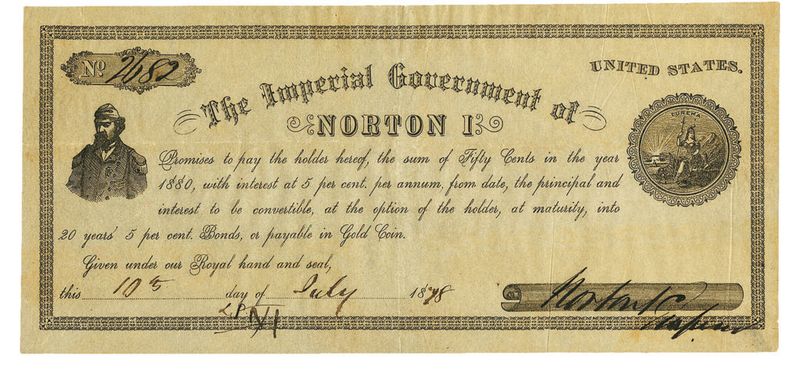 No. 2682
UNITED STATES.
The Imperial Government of
NORTON I.
EUREKA
Promises to pay the holder hereof, the sum of Fifty Cents in the year
1880, with interest at 5 per cent. per annum, from date, the principal and
interest to be convertible, at the option of the holder, at maturity, into
20 years' 5 per cent. Bonds, or payable in Gold Coin.
Given under our Royal hand and seal,
this 10th day of July 1878
Norton I